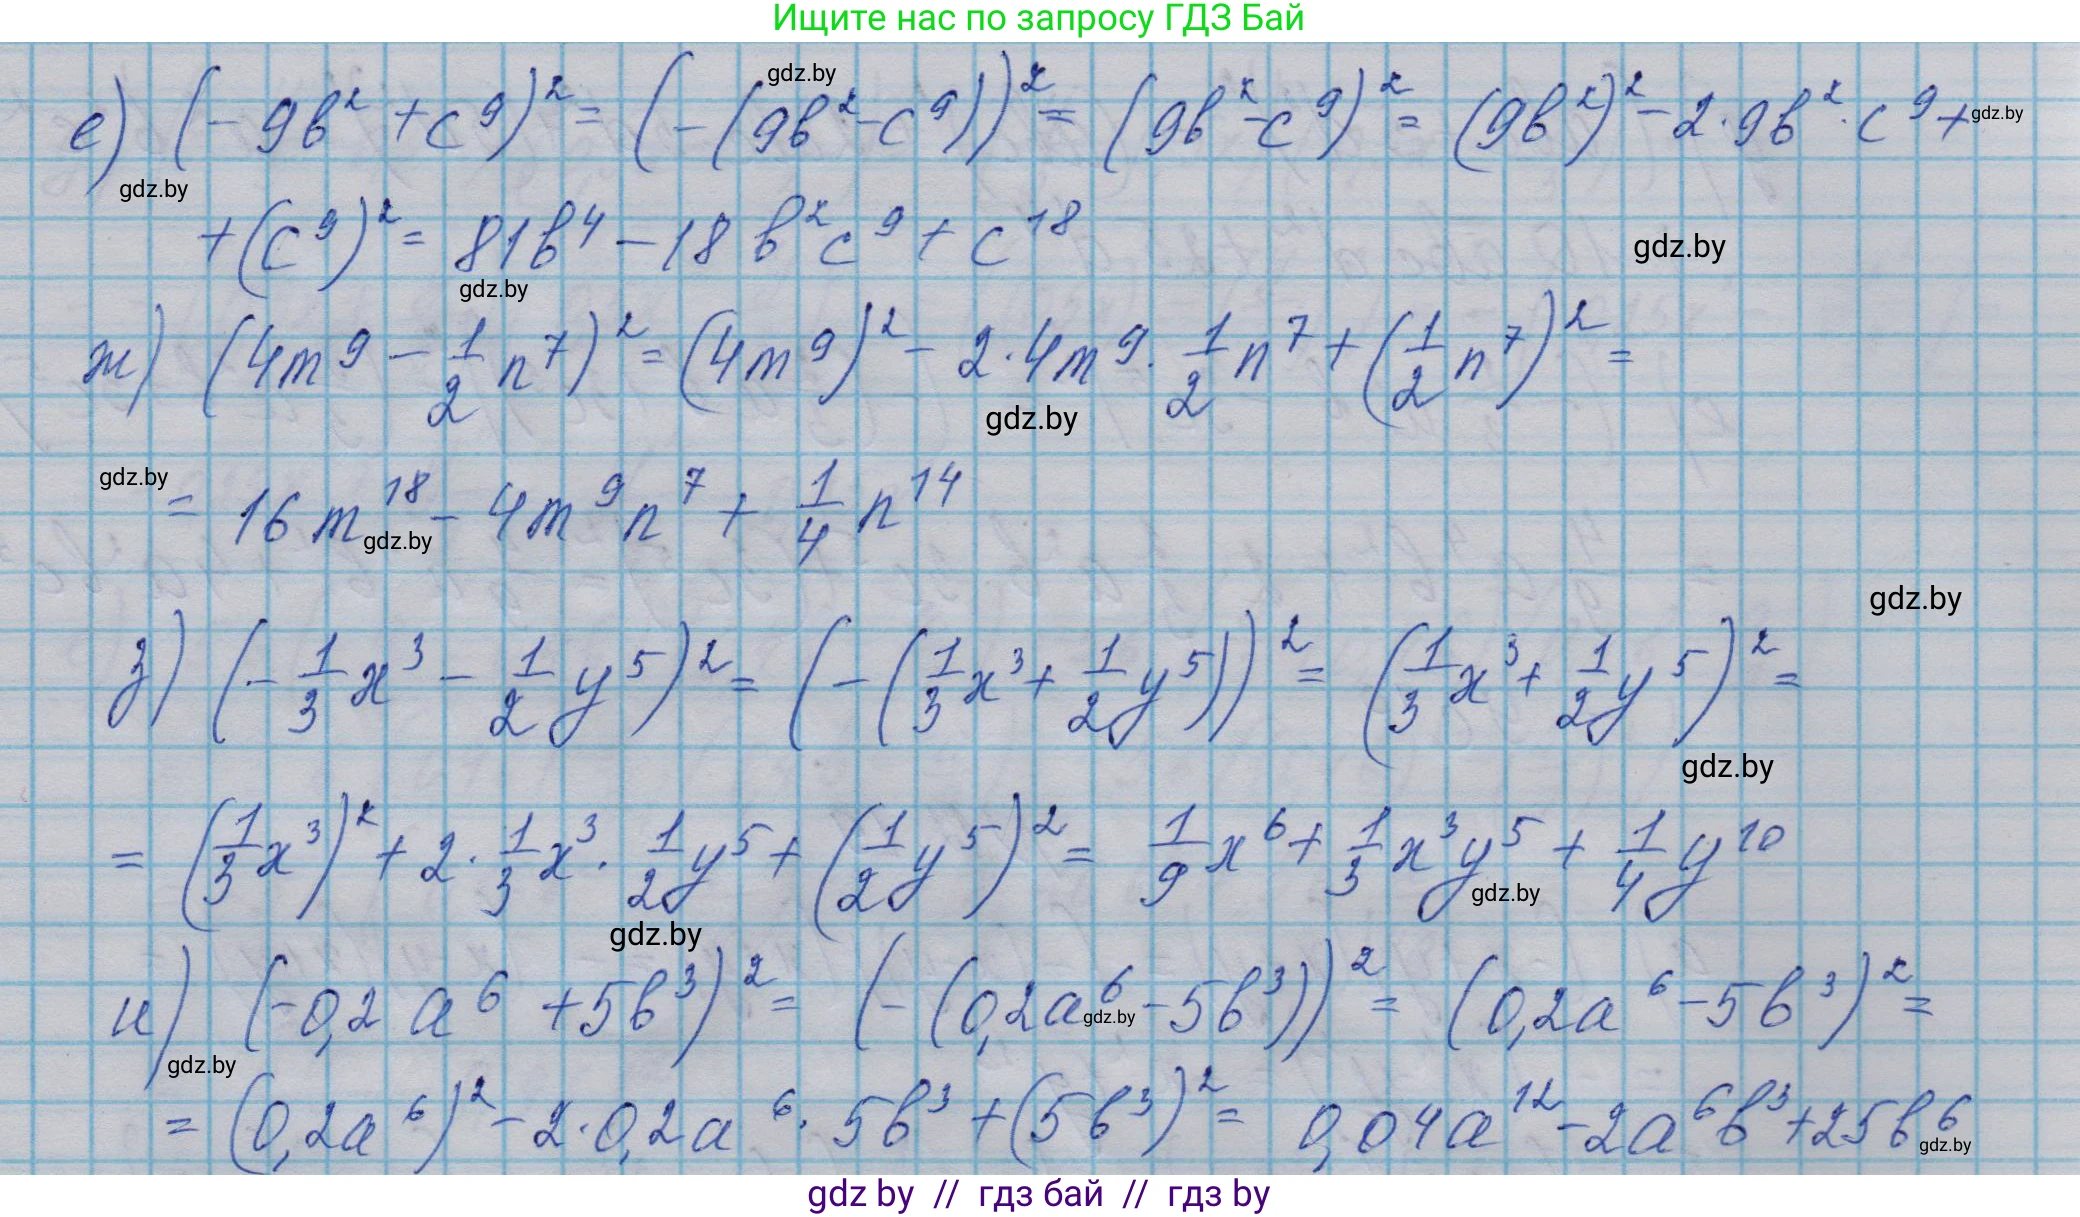 Ищите нас по запросу ГДЗ Бай
gdz.by
е) (-9b² + c⁹)² = (-(9b² - c⁹))² = (9b² - c⁹)² = (9b²)² - 2·9b²·c⁹ + gdz.by
gdz.by
+ (c⁹)² = 81b⁴ - 18b²c⁹ + c¹⁸
gdz.by
gdz.by
ж) (4m⁹ - 1/2 n⁷)² = (4m⁹)² - 2·4m⁹·1/2 n⁷ + (1/2 n⁷)² =
gdz.by
gdz.by
= 16m¹⁸ - 4m⁹n⁷ + 1/4 n¹⁴
gdz.by
gdz.by
з) (-1/3 x³ - 1/2 y⁵)² = (-(1/3 x³ + 1/2 y⁵))² = (1/3 x³ + 1/2 y⁵)² =
gdz.by
= (1/3 x³)² + 2·1/3 x³·1/2 y⁵ + (1/2 y⁵)² = 1/9 x⁶ + 1/3 x³y⁵ + 1/4 y¹⁰
gdz.by
gdz.by
и) (-0,2a⁶ + 5b³)² = (-(0,2a⁶ - 5b³))² = (0,2a⁶ - 5b³)² =
gdz.by
gdz.by
= (0,2a⁶)² - 2·0,2a⁶·5b³ + (5b³)² = 0,04a¹² - 2a⁶b³ + 25b⁶
gdz.by
gdz by // гдз бай // гдз by